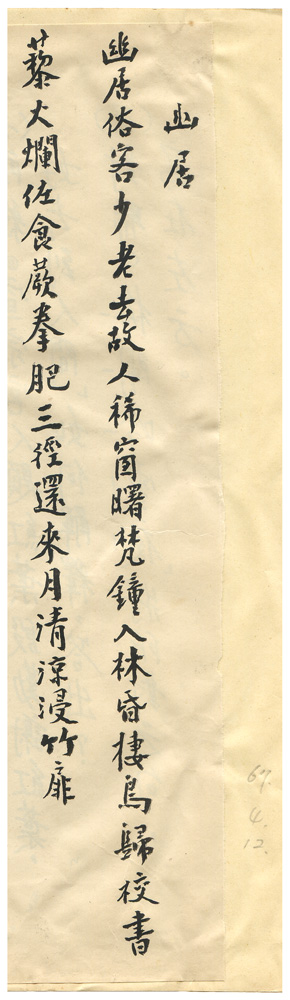 幽居
幽居俗客少老去故人稀窗曙梵鐘入林昏棲鳥歸校書
藜火爛佐食蕨拳肥三徑還來月清涼浸竹扉
67.
4.
12.